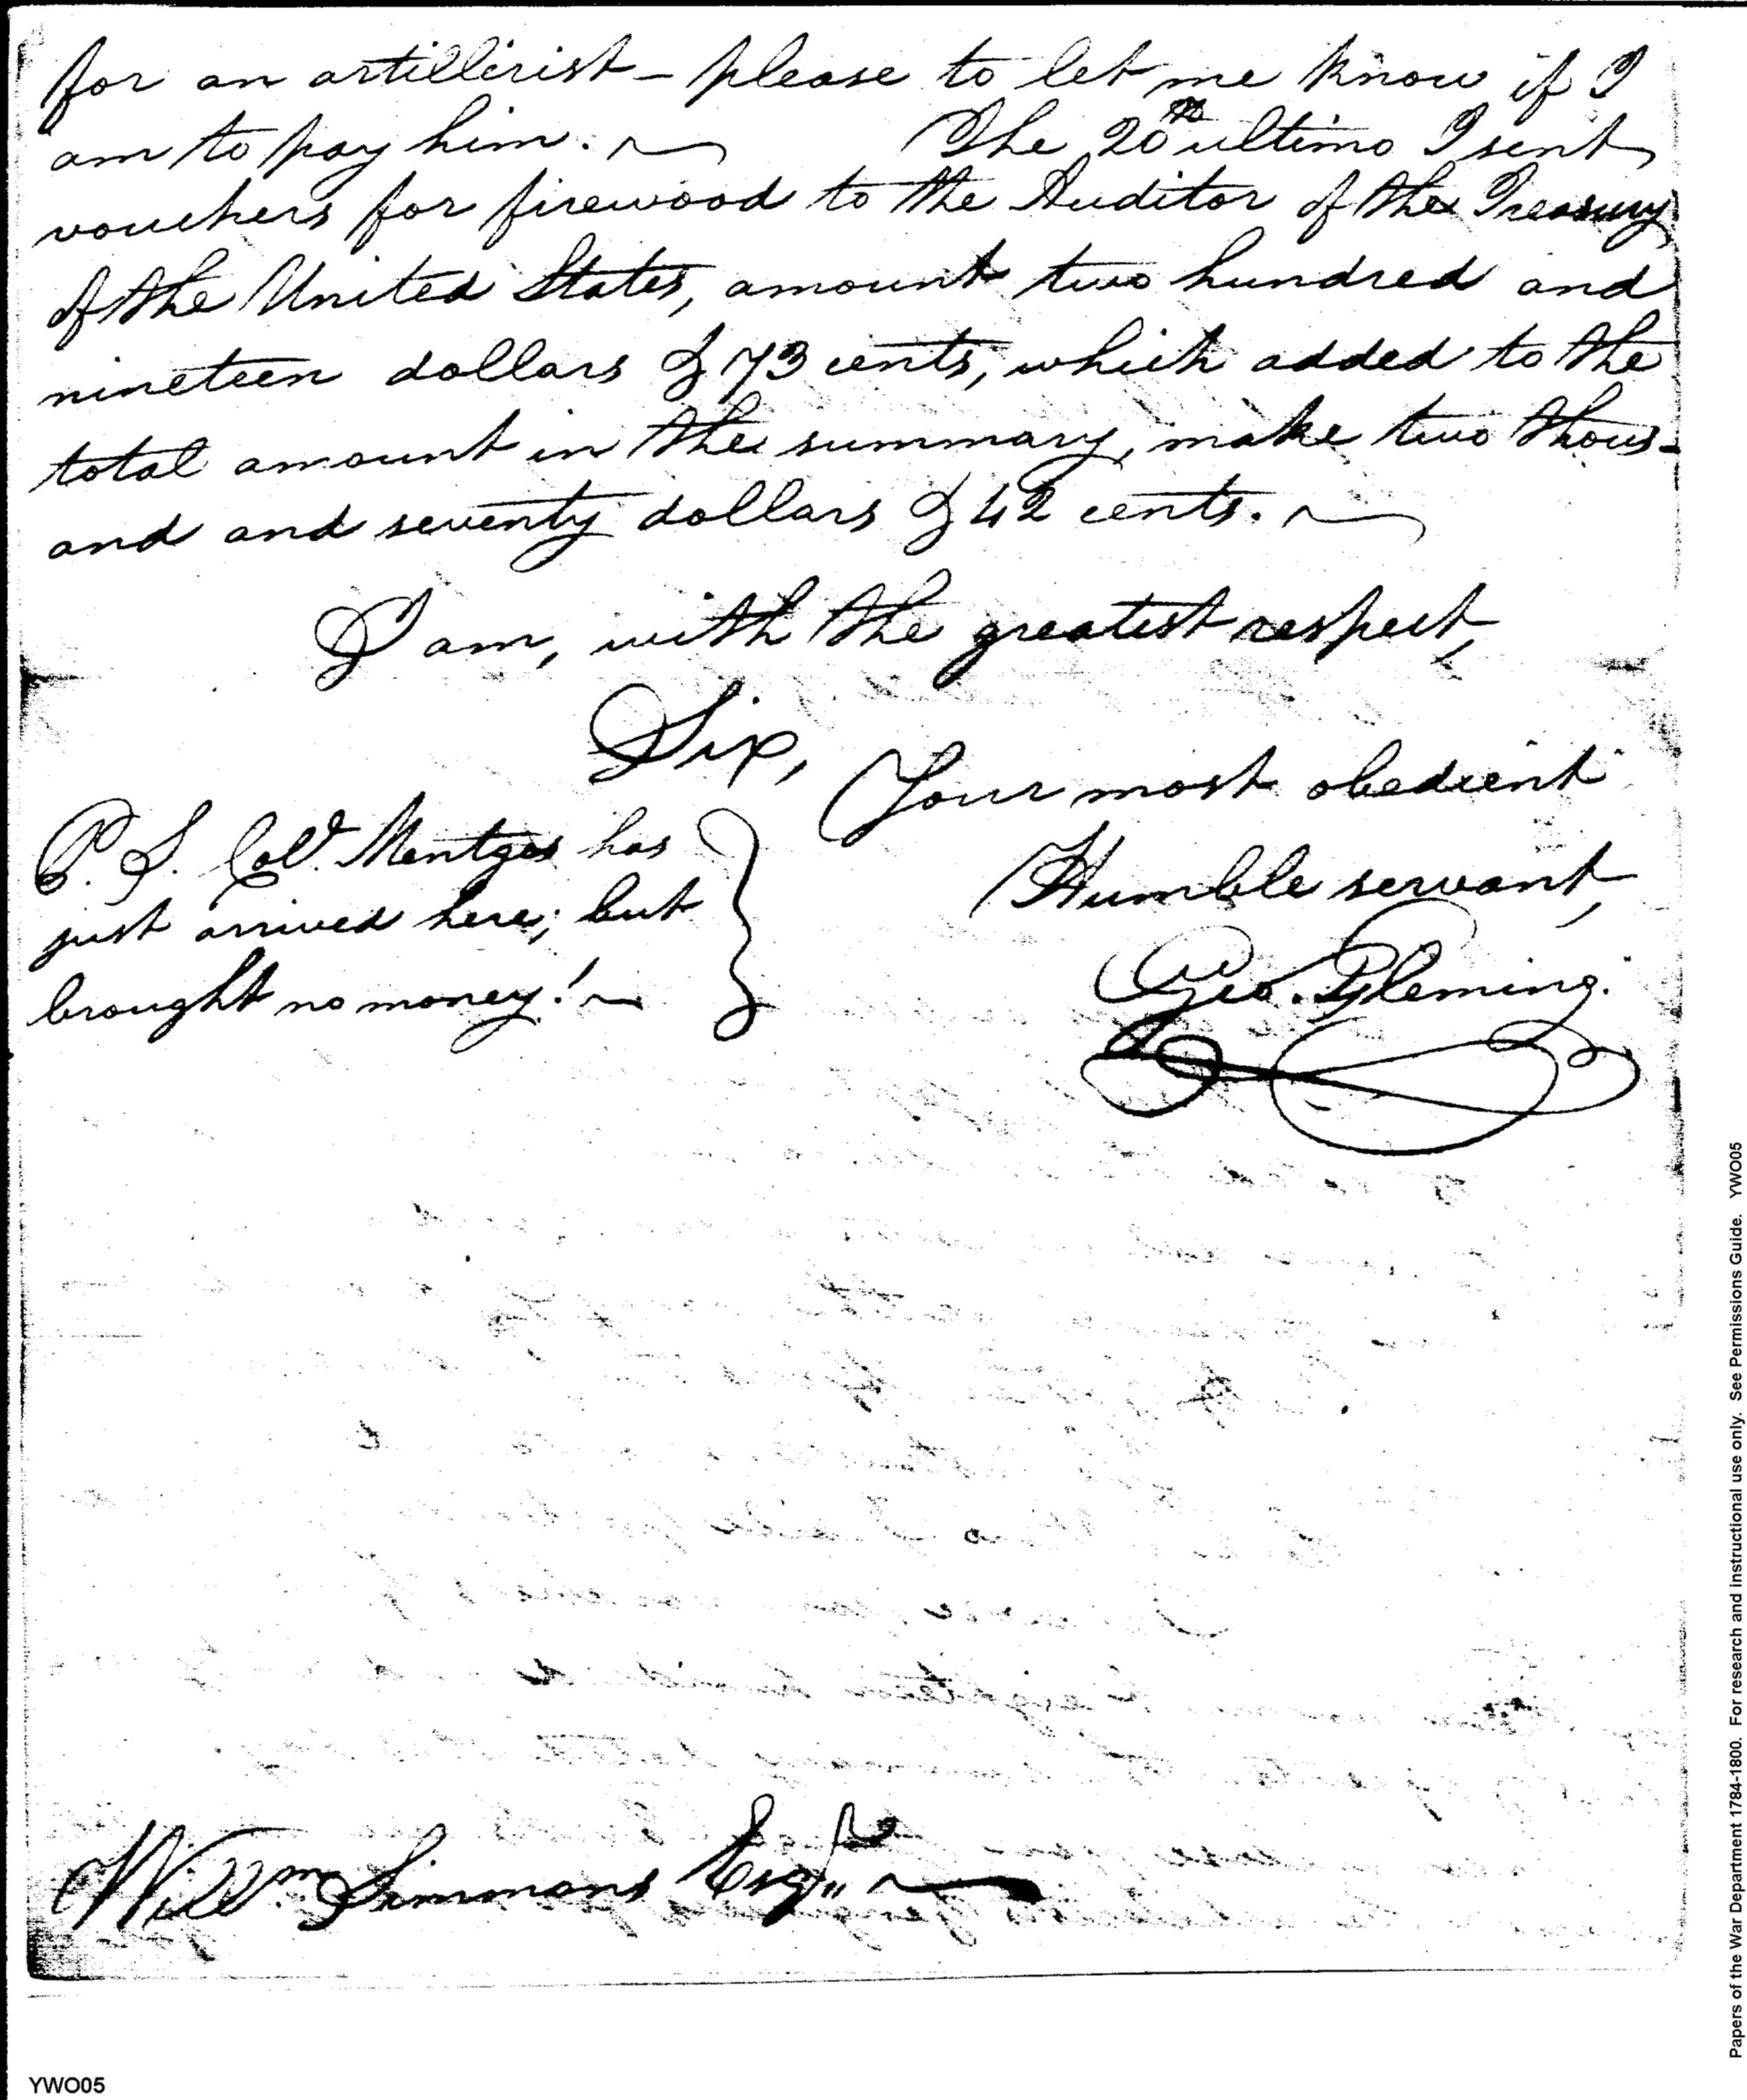 for an artillerist - please to let me know if I
am to pay him. The 20th ultimo I sent
vouchers for firewood to the Auditor of the Treasury
of the United States, amount two hundred and
nineteen dollars & 73 cents, which added to the
total amount in the summary, make two thous-
and and seventy dollars & 42 cents.
I am, with the greatest respect,
Sir,
Your most obedient
Humble servant,
Geo. Fleming.
P. S. Col. Mentges has
just arrived here; but
brought no money!
Willm. Simmons Esqre
Papers of the War Department 1784-1800. For research and instructional use only. See Permissions Guide. YWO05
YWO05